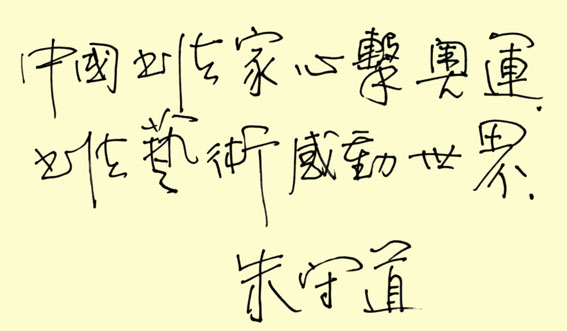 中國书法家心繫奧運.
书法藝術感動世界.
朱守道